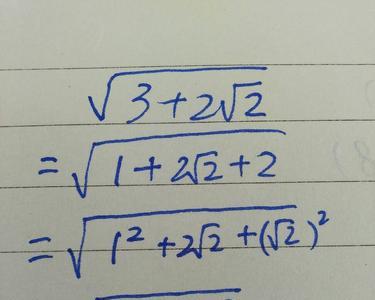 √(3+2√2)
=√(1+2√2+2)
=√(1²+2√2+(√2)²)